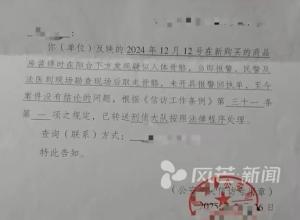 你（单位）反映的2024年12月12号在新购买的商品
房装修时在阳台下方发现疑似人体骨骼，当即报警，民警及
法医到现场勘查现场后取走骨骼，未开具报警回执单，至今
案件没有结论的问题，根据《信访工作条例》第三十一条
第一项之规定，已转送刑侦大队按照法律程序处理。
查询（联系）方式：
特此告知。
风芒新闻
（公 章）
2025 6日